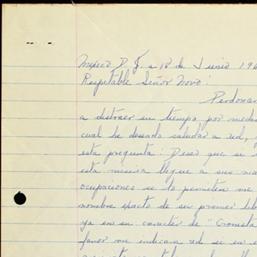 México D. F. a 18 de Junio 196
Respetable Señor Novo.
Perdonar
a distraer su tiempo por medio
cual he deseado saludar a usd,
esta pregunta. Deseo que se
esta misiva llegue a sus ma
ocupaciones se lo permiten me
nombre exacto de su primer lib
ya en su caracter de "Cronista
favor me indicara usd se en e